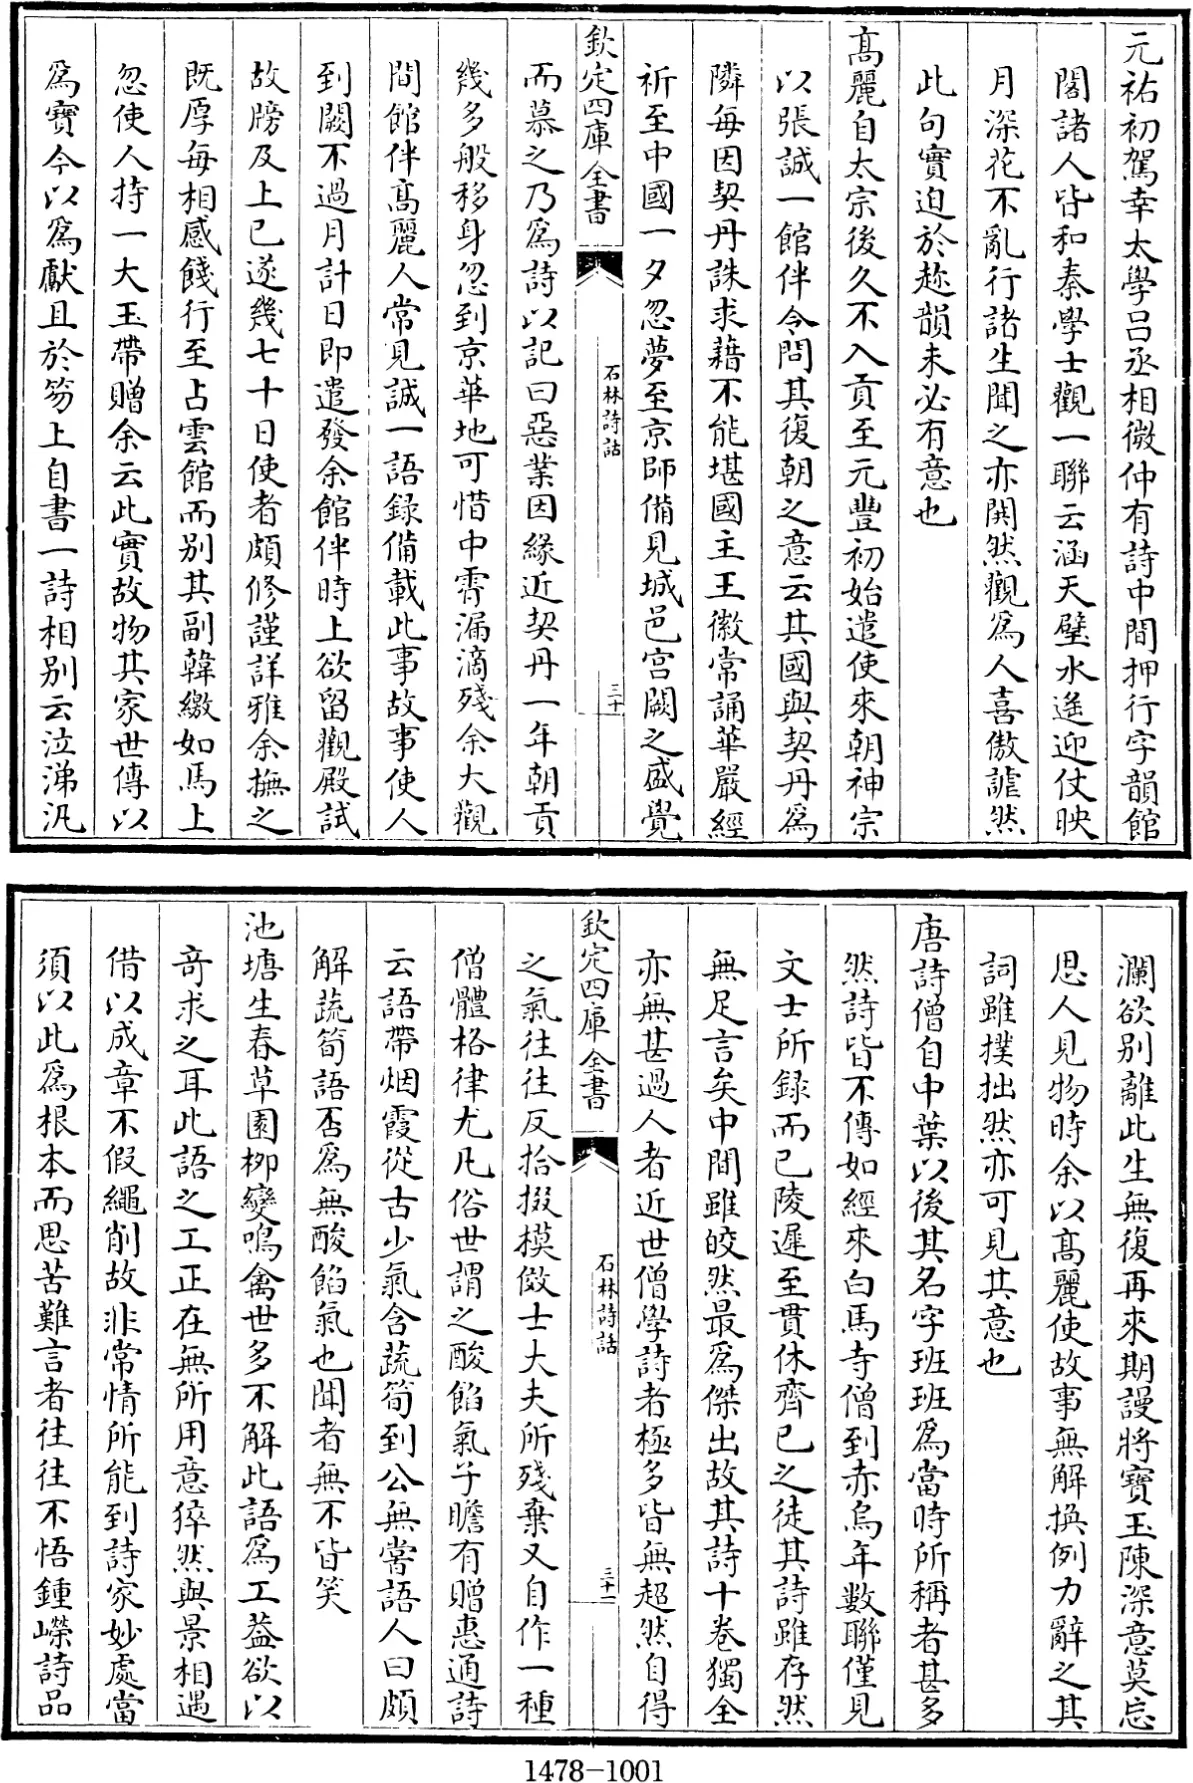 元祐初駕幸太學吕丞相微仲有詩中間押行字韻館
閣諸人皆和秦學士觀一聯云涵天璧水遙迎仗映
月深花不亂行諸生聞之亦閧然觀爲人喜傲謔然
此句實迫於趂韻未必有意也
髙麗自太宗後久不入貢至元豐初始遣使來朝神宗
以張誠一館伴令問其復朝之意云其國與契丹爲
隣每因契丹誅求藉不能堪國主王徽常誦華嚴經
祈至中國一夕忽夢至京師備見城邑宫闕之盛覺
欽定四庫全書
石林詩話
三十
而慕之乃爲詩以記曰惡業因緣近契丹一年朝貢
幾多般移身忽到京華地可惜中霄漏滴殘余大觀
間館伴髙麗人常見誠一語録備載此事故事使人
到闕不過月計日即遣發余館伴時上欲留觀殿試
故牓及上已遂幾七十日使者頗修謹詳雅余撫之
既厚每相感餞行至占雲館而别其副韓繳如馬上
忽使人持一大玉帶贈余云此實故物其家世傳以
爲寶今以爲獻且於笏上自書一詩相别云泣涕汍
瀾欲别離此生無復再來期謾將寶玉陳深意莫忘
思人見物時余以髙麗使故事無解换例力辭之其
詞雖撲拙然亦可見其意也
唐詩僧自中葉以後其名字班班爲當時所稱者甚多
然詩皆不傳如經來白馬寺僧到赤烏年數聯僅見
文士所録而已陵遲至貫休齊已之徒其詩雖存然
無足言矣中間雖皎然最爲傑出故其詩十卷獨全
亦無甚過人者近世僧學詩者極多皆無超然自得
欽定四庫全書
石林詩話
三十一
之氣往往反拾掇模倣士大夫所殘棄又自作一種
僧體格律尤凡俗世謂之酸餡氣子瞻有贈惠通詩
云語帶烟霞從古少氣含蔬筍到公無嘗語人曰頗
解蔬筍語否爲無酸餡氣也聞者無不皆笑
池塘生春草園栁變鳴禽世多不解此語爲工葢欲以
奇求之耳此語之工正在無所用意猝然與景相遇
借以成章不假繩削故非常情所能到詩家妙處當
須以此爲根本而思苦難言者往往不悟鍾嶸詩品
1478-1001